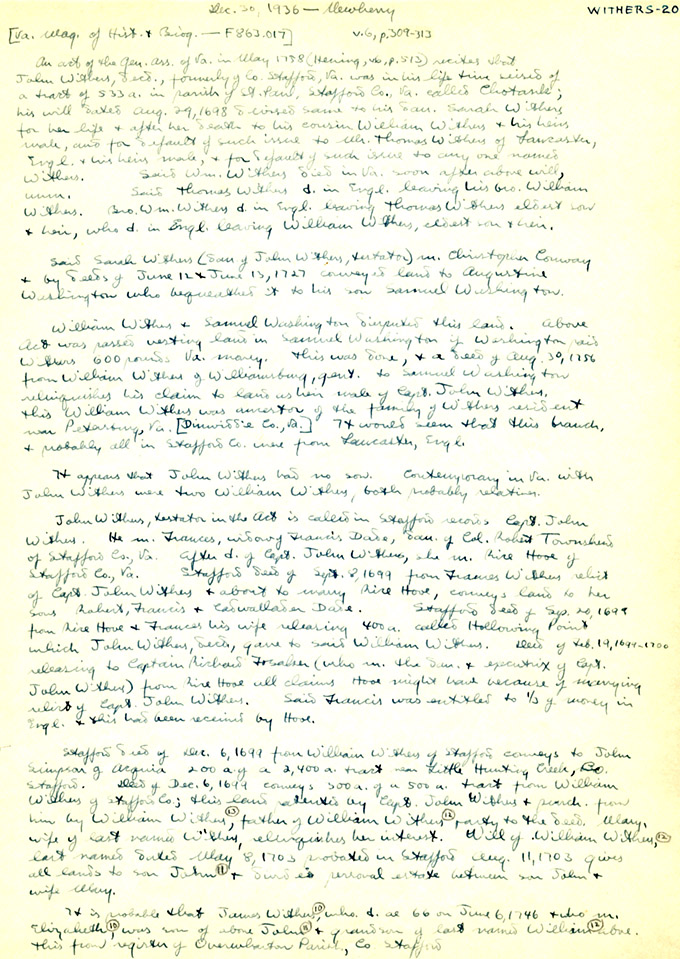 Dec. 30, 1936 — Newberry
WITHERS-20
[Va. Mag. of Hist. & Biog. — F863.017] v.6, p.309-313
An act of the Gen. Ass. of Va. in May 1758 (Hening, v6, p.513) recites that
John Withers, decd., formerly of Co. Stafford, Va. was in his life time, seised of
a tract of 533 a. in parish of St. Paul, Stafford Co., Va. called Chotank;
his will dated Aug. 29, 1698 devised same to his dau. Sarah Withers
for her life & after her death to his cousin William Withers & his heirs
male, and for default of such issue to Mr. Thomas Withers of Lancaster,
Engl. & his heirs male, & for default of such issue to any one named
Withers. Said Wm. Withers died in Va. soon after above will,
unm. Said Thomas Withers d. in Engl. leaving his bro. William
Withers. Bro. Wm. Withers d. in Engl. leaving Thomas Withers eldest son
& heir, who d. in Engl. leaving William Withers, eldest son & heir.
Said Sarah Withers (dau. of John Withers, testator) m. Christopher Conway
& by deeds of June 12 & June 13, 1727 conveyed land to Augustine
Washington who bequeathed it to his son Samuel Washington.
William Withers & Samuel Washington disputed this land. Above
Act was passed vesting land in Samuel Washington if Washington paid
Withers 600 pounds Va. money. This was done, & a deed of Aug. 30, 1756
from William Withers of Williamsburg, gent. to Samuel Washington
relinquishes his claim to land as heir male of Capt. John Withers.
This William Withers was ancestor of the family of Withers resident
near Petersburg, Va. [Dinwiddie Co., Va.] It would seem that this branch,
& probably all in Stafford Co. were from Lancaster, Engl.
It appears that John Withers had no son. Contemporary in Va. with
John Withers were two William Withers, both probably relatives.
John Withers, testator in the Act is called in Stafford records Capt. John
Withers. He m. Frances, widow of Francis Dade, dau. of Col. Robert Townshend
of Stafford Co., Va. After d. of Capt. John Withers, she m. Rice Hooe of
Stafford Co., Va. Stafford deed of Sept. 8, 1699 from Frances Withers relict
of Capt. John Withers & about to marry Rice Hooe, conveys land to her
sons Robert, Francis & Cadwallader Dade. Stafford deed of Sep. 20, 1699
from Rice Hooe & Frances his wife releasing 400 a. called Hollowing Point
which John Withers, decd., gave to said William Withers. Deed of Feb. 19, 1699-1700
releasing to Captain Richard Fossaker (who m. the dau. & executrix of Capt.
John Withers) from Rice Hooe all claims Hooe might have because of marrying
relict of Capt. John Withers. Said Francis was entitled to 1/3 of money in
Engl. & this had been received by Hooe.
Stafford deed of Dec. 6, 1699 from William Withers of Stafford conveys to John
Simpson of Acquia 200 a. of a 2,400 a. tract near Little Hunting Creek, Co.
Stafford. Deed of Dec. 6, 1699 conveys 300 a. of a 500 a. tract from William
Withers of Stafford Co; this land patented by Capt. John Withers & purch. from
him by William Withers, (13) father of William Withers (12) party to the deed. Mary,
wife of last named Withers, relinquishes her interest. Will of William Withers, (12)
last named dated May 8, 1703 probated in Stafford Aug. 11, 1703 gives
all lands to son John (11) & divides personal estate between son John &
wife Mary.
It is probable that James Withers (10), who d. ae 66 on June 6, 1746 & who m.
Elizabeth, (10) was son of above John (11) & grandson of last named William (12) above.
This from register of Overwharton Parish, Co Stafford